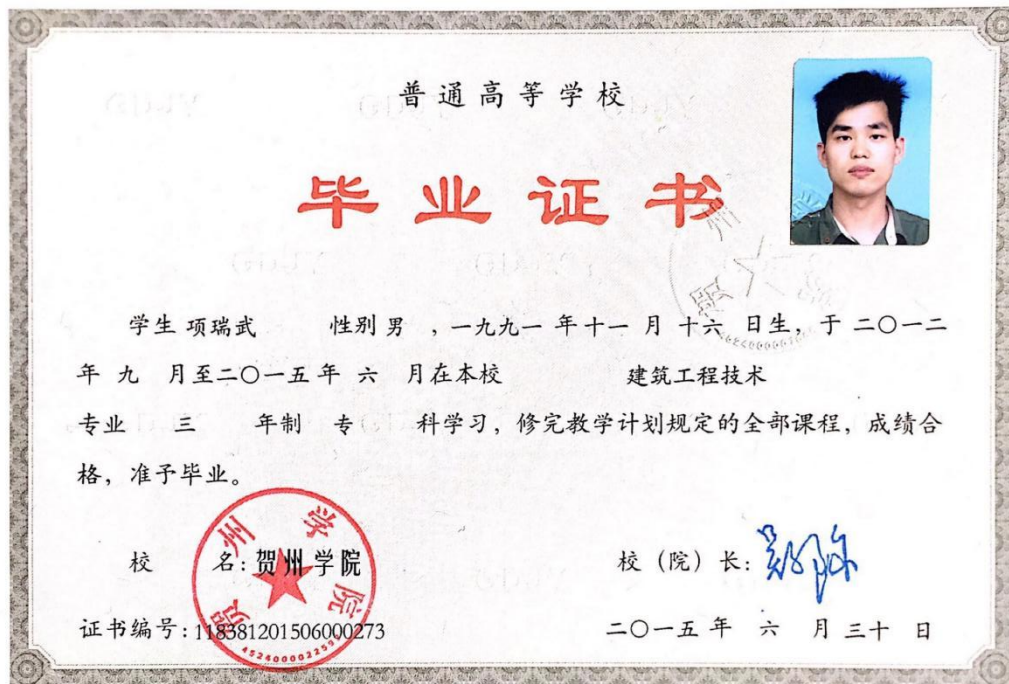 普通高等学校
毕业证书
学生 项瑞武 性别 男 ，一九九一 年 十一 月 十六 日生，于 二〇一二
年 九 月至二〇一五年 六 月在本校 建筑工程技术
专业 三 年制 专 科学习，修完教学计划规定的全部课程，成绩合
格，准予毕业。
校 名：贺州学院
校（院）长：
证书编号：118381201506000273
二〇一五年 六 月 三十 日
贺州学院